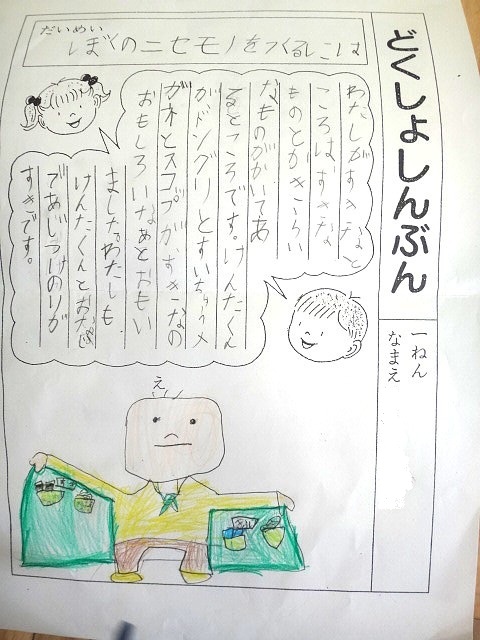 どくしょしんぶん
一ねん
なまえ
だいめい
ぼくのニセモノをつくるには
わたしがすきなと
ころは、すきな
ものとかきらい
なものがかいてあ
るところです。けんたくん
が、ドングリとすいちゅうメ
ガネとスコプが、すきなの
おもしろいなあとおもい
ました。わたしも
けんたくんとおなじ
であじつけのりが
すきです。
え